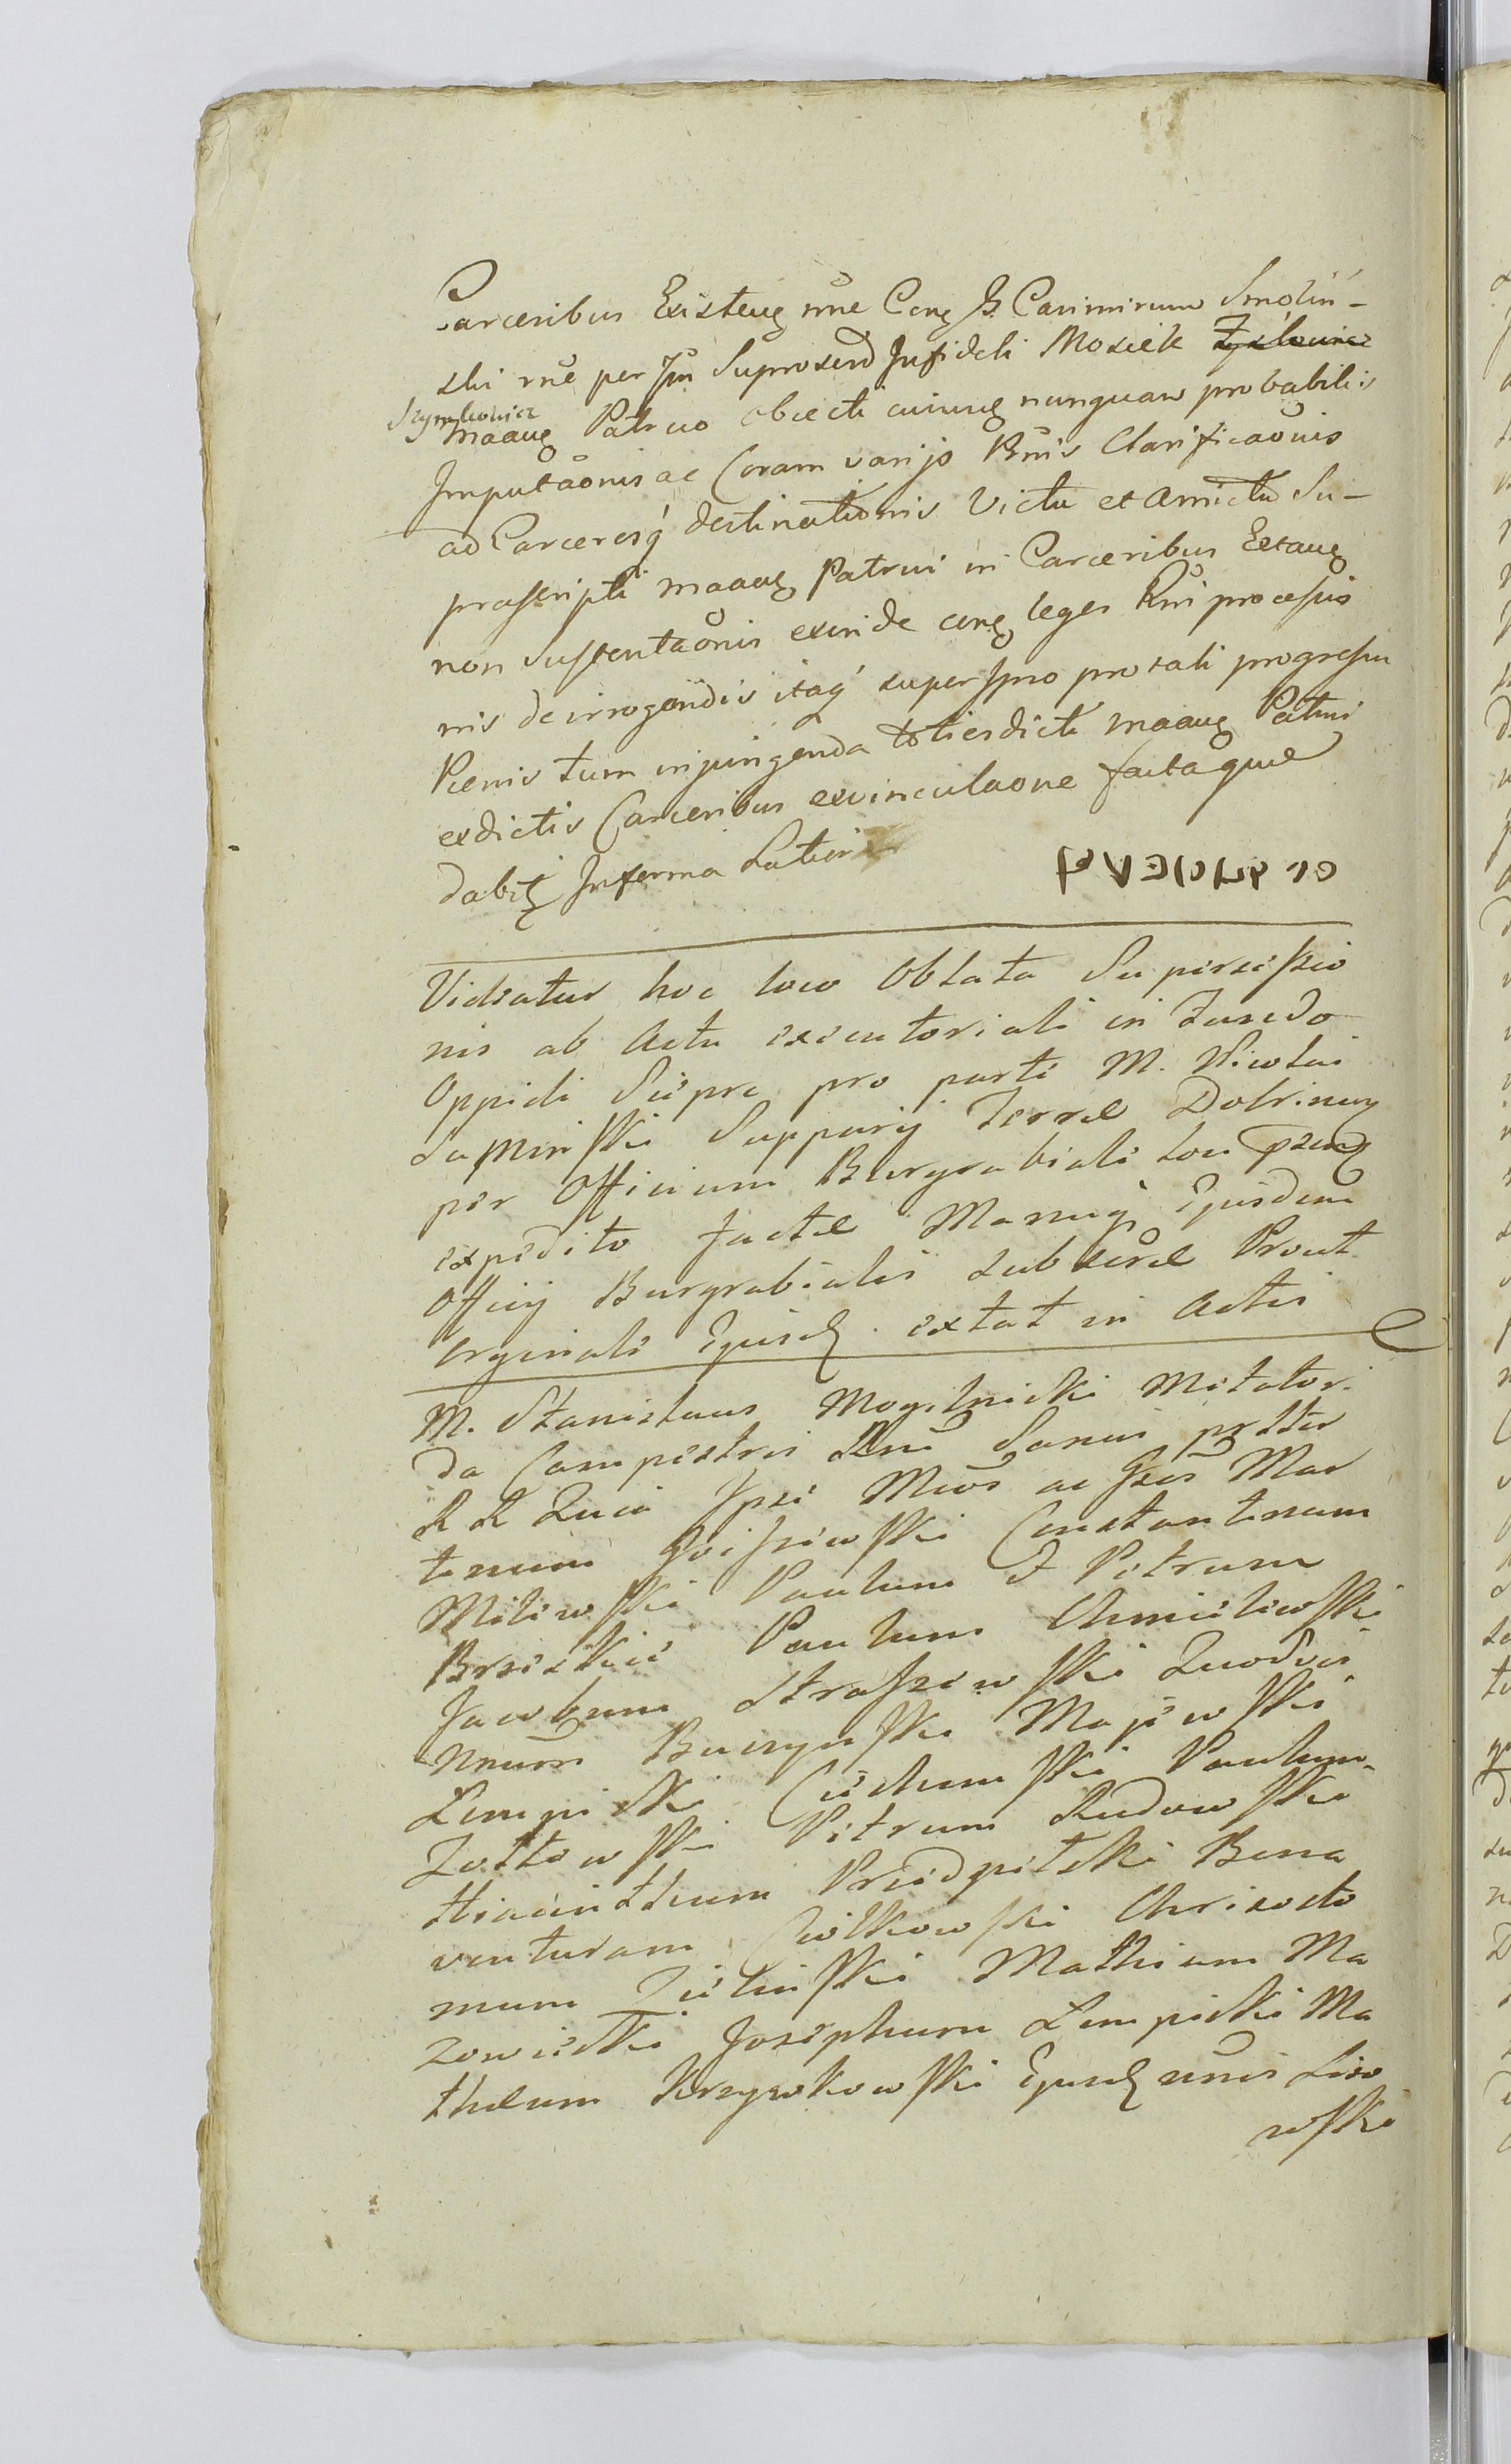 Carceribus Existeng rne Cong G. Casimirum Smolin-
ski rne per Jpm Suprascrd Infideli Mosiek
Szymkowicz
maang Patruo obiecti nunquam probabilis
Imputaonis ac Coram varijs Rnis Clarificaonis
ad Carceresq destinationis Victu et Amictu Su-
prascripti maang Patrui in Carceribus Extang
non Sustentaonis exinde cong leges Rni processus
nis de irrogandis itaq super Jpso pro tali progressu
Penis tum injungenda toties dicti maang Patrui
ex dictis Carceribus exvinculaone factaque
dabit Inferma Lateri

Videatur hoc loco Oblata Supersessio
nis ab Actu executoriali in fundo
Oppidi Sierpc pro parte M. Nicolai
Saminski Supparij Terrae Dobrinen
per Officium Burgrabiale Loci
expedito factae Manuq Ejusdem
Officij Burgrabialis subscrae Prout
orginale Ejusd. extat in Actis
M. Stanislaus Mogilnicki
da Campestris
R R Quia Ipse Mcos ac Gsos Mar
tinum Goiszewski Constantinum
Milewski Paulum & Petrum
Brzeskie Paulum Chmielewski
Jacobum Straszewski Quodvis
Nnum Buczynski Majewski
Lempicki Ciechomski Paulum
Zotkowski Petrum Rudowski
Hiacinthum Przedpelski Bona
venturam Ciolkowski Chrisosto
mum Zielinski Mathiam Ma
zowiecki Josephum Lempicki Ma
thaeum Krzywkowski Ejusd nnis Liso
wski